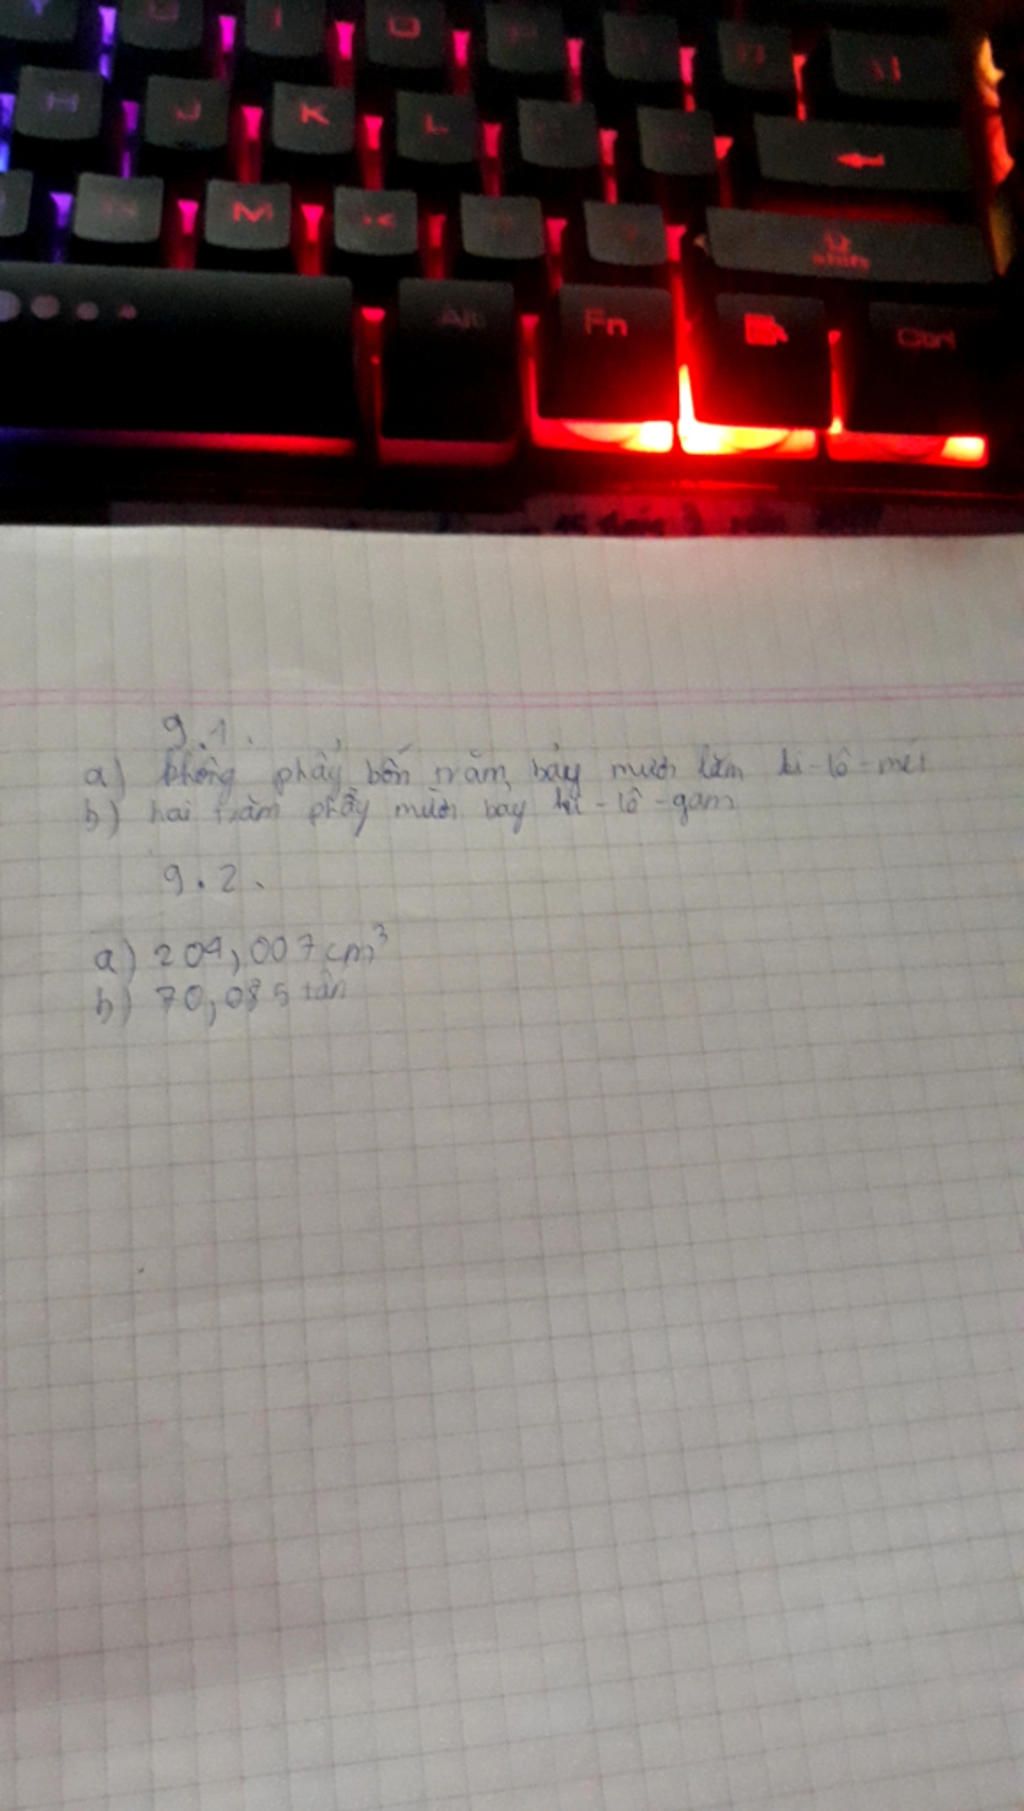 Y U I O P
H J K L
N M <
shift
Alt Fn Ctrl
9.1.
a) không phẩy bốn trăm bảy mươi lăm ki-lô-mét
b) hai trăm phẩy mười bay ki-lô-gam
9.2.
a) 204,007 cm³
b) 70,085 tấn